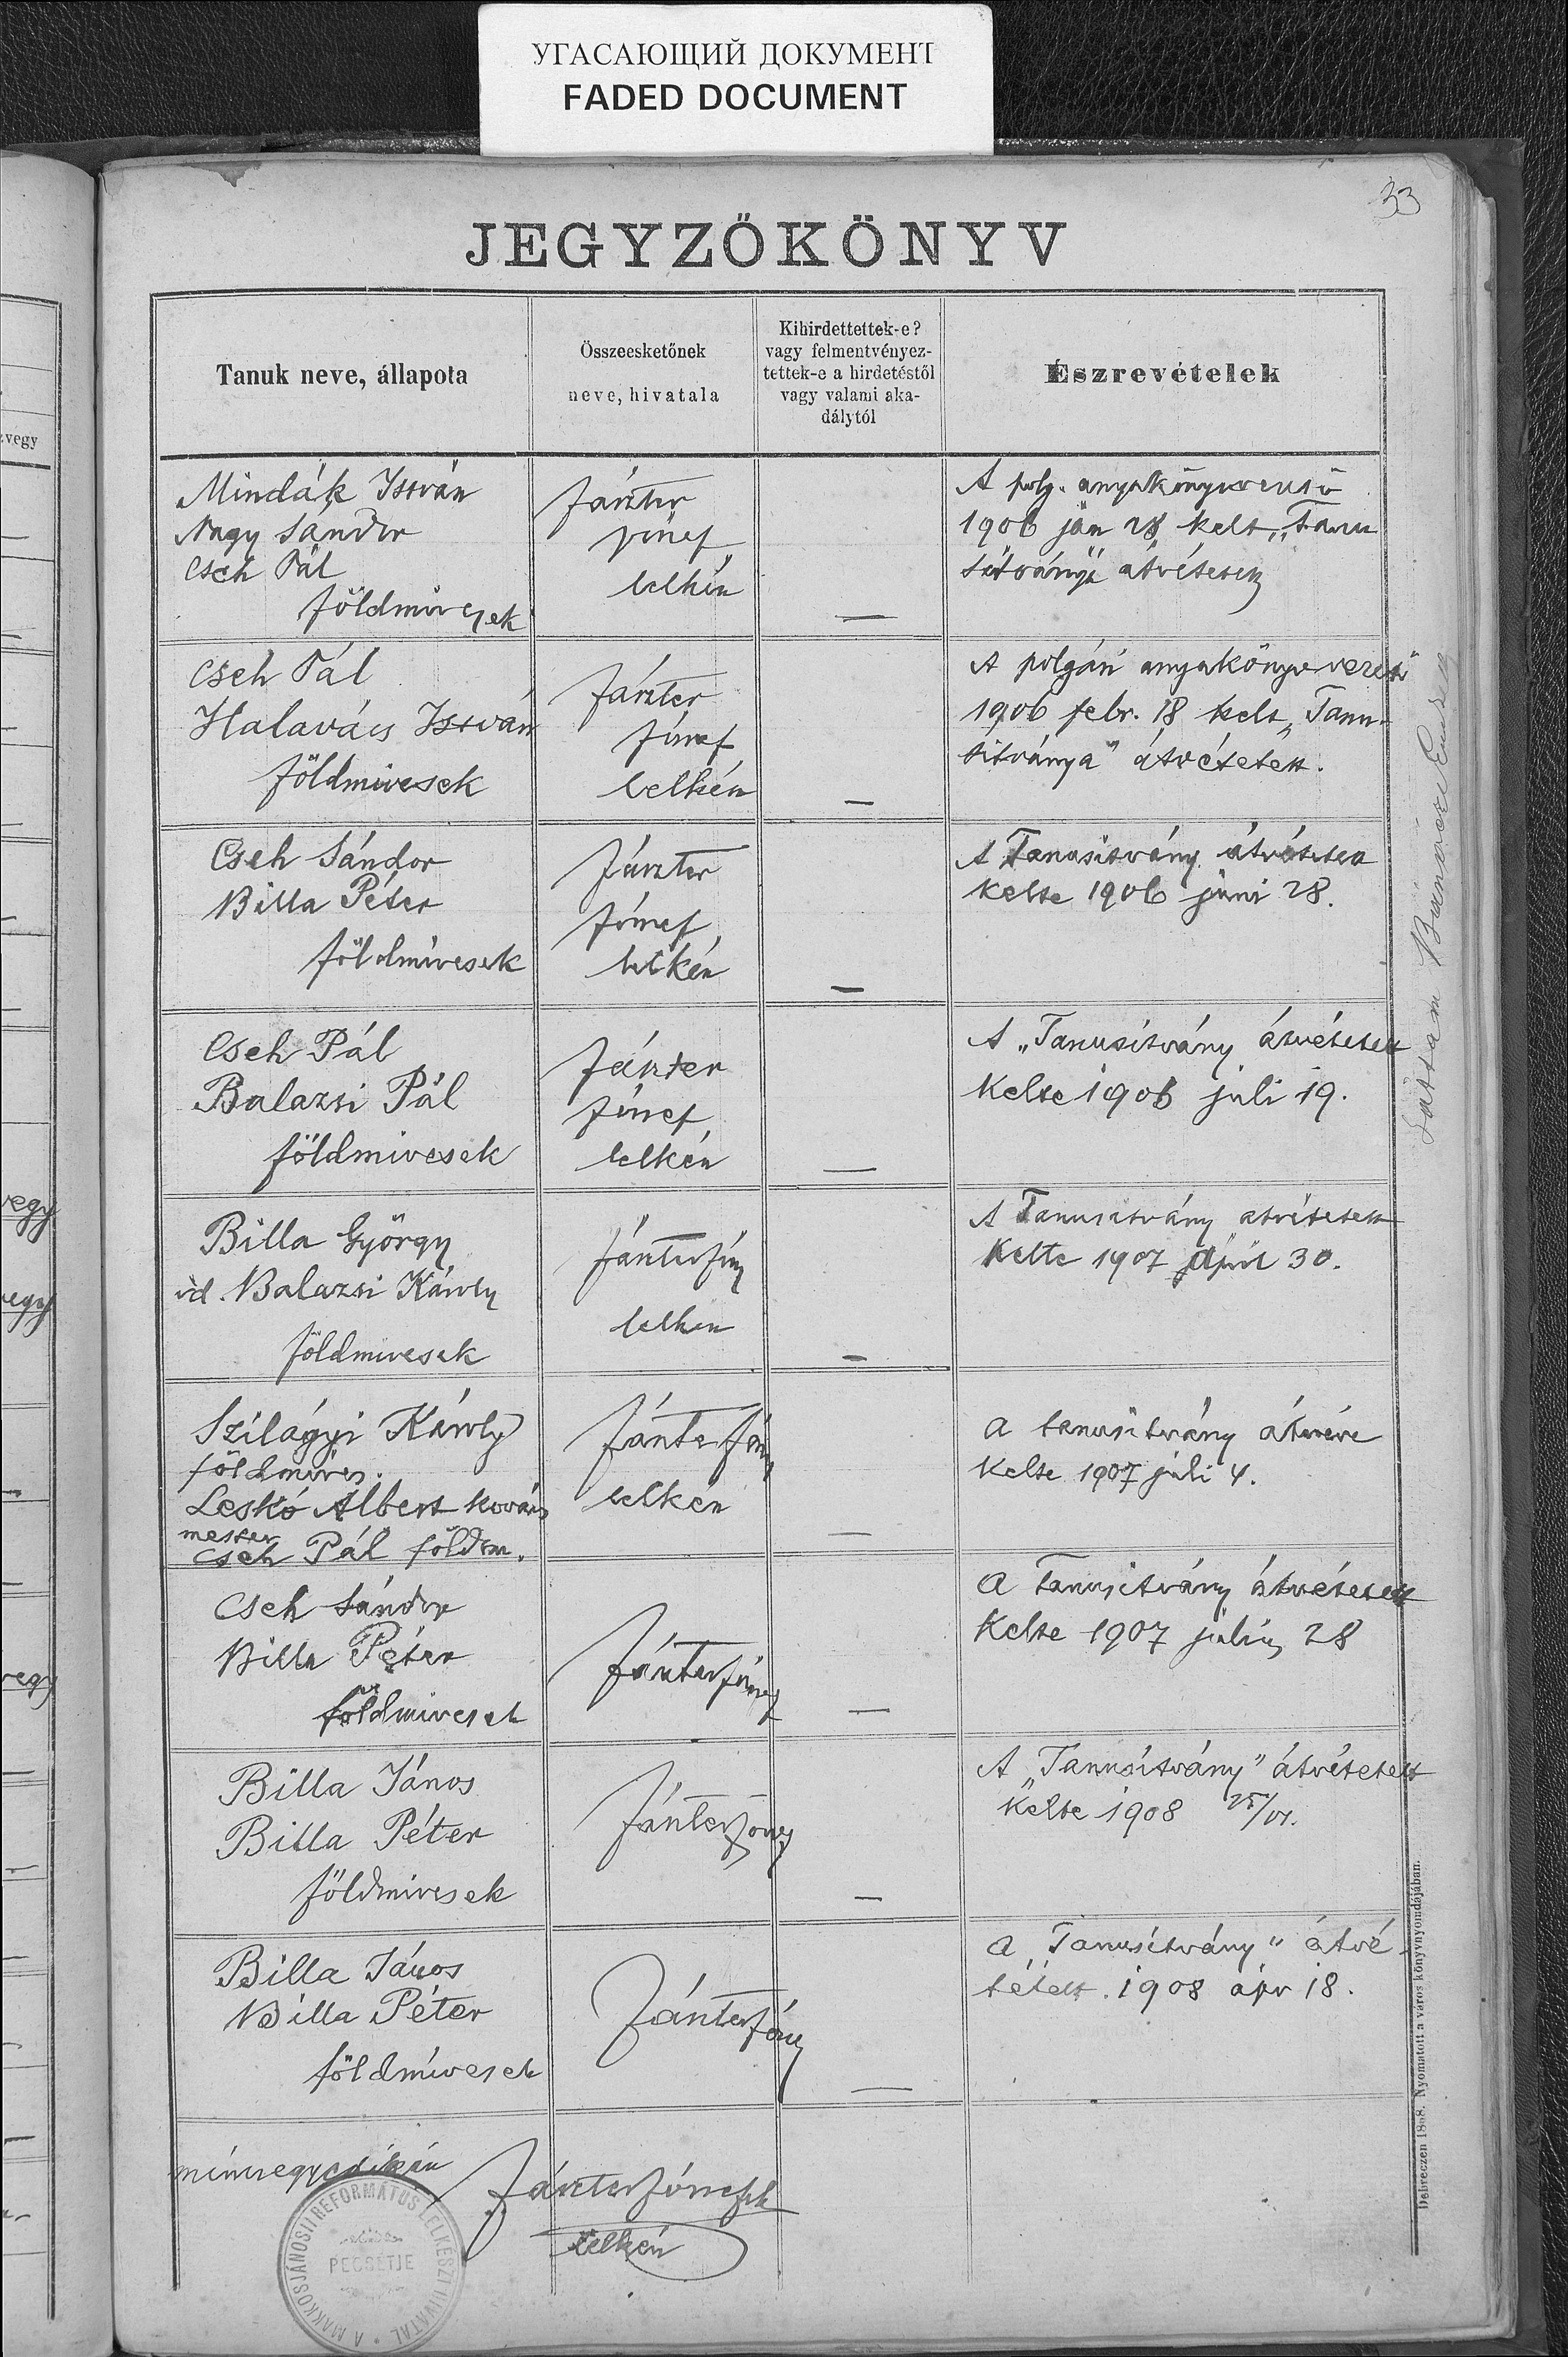 УГАСАЮЩИЙ ДОКУМЕНТ
FADED DOCUMENT
33
JEGYZŐKÖNYV
Tanuk neve, állapota
Összeesketőnek
neve, hivatala
Kihirdettettek-e?
vagy felmentvényez-
tettek-e a hirdetéstől
vagy valami aka-
dálytól
Észrevételek
Mindák István
Nagy Sándor
Cseh Pál
földművesek
lelkész
—
A polg. anyakönyvvezető
1906 jan 28 kelt „Tanu
sítványa átvétetett
Cseh Pál
Halavács István
földmivesek
József
lelkész
—
A polgári anyakönyvvezető
1906 febr. 18 kelt „Tanu-
sitványa" átvétetett.
Cseh Sándor
Billa Péter
földmívesek
József
lelkész
—
A Tanusitvány átvétetett
kelte 1906 juni 28.
Cseh Pál
Balazsi Pál
földmivesek
József
lelkész
—
A „Tanusitvány átvétetett
Kelte 1906 juli 19.
Billa György
id. Balazsi Károly
földmivesek
lelkész
—
A Tanusitvány átvétetett
Kelte 1907 April 30.
Szilágyi Károly
földmíves.
Leskó Albert kovács
mester
Cseh Pál földm.
lelkész
—
A tanusitvány átvéve
Kelte 1907 juli 4.
Cseh Sándor
Billa Péter
földmivesek
—
A Tanusitvány átvétetett
Kelte 1907 július 28
Billa János
Billa Péter
földmivesek
—
A „Tanusítvány" átvétetett
Kelte 1908
Billa János
Billa Péter
földmívesek
—
A „Tanusítvány" átvé-
tetett. 1908 ápr 18.
József
lelkész
A MAKKOSJÁNOSII REFORMÁTUS LELKÉSZI HIVATAL
PECSÉTJE
Láttam
Debreczen 1888. Nyomatott a város könyvnyomdájában.
vegy
vegy
egy
vegy